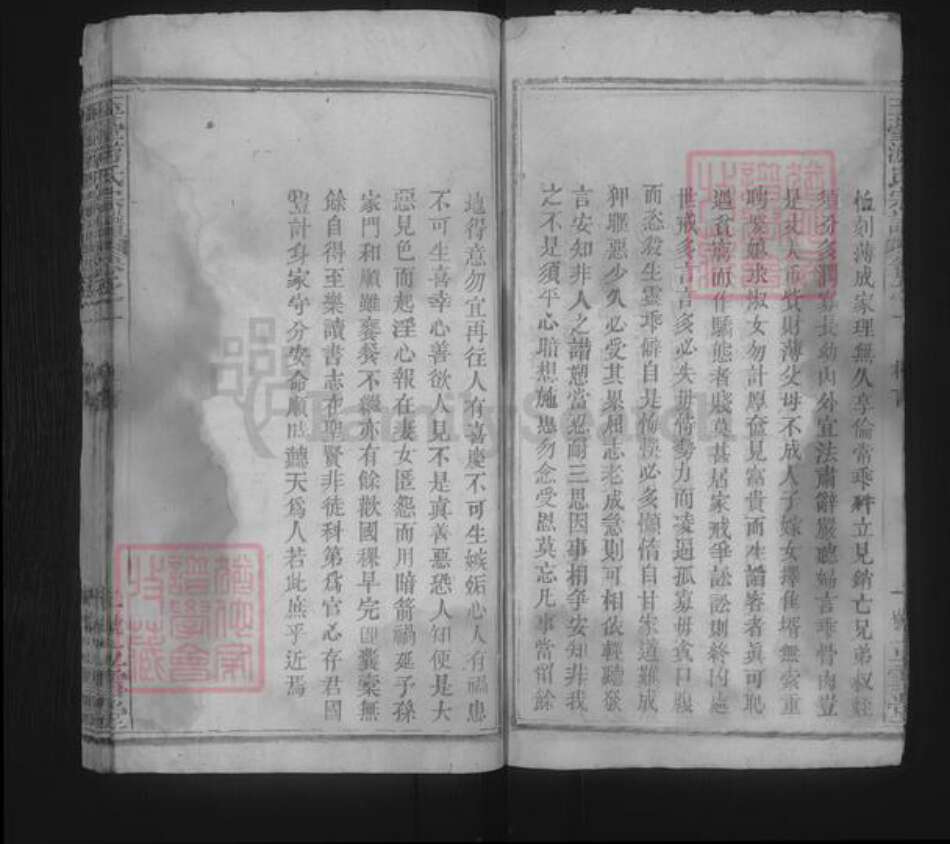 恤刻薄成家理無久享倫常乖舛立見銷亡兄弟叔姪
須分多潤寡長幼內外宜法肅辭嚴聽婦言乖骨肉豈
是丈夫重貲財薄父母不成人子嫁女擇佳壻無索重
聘娶媳求淑女勿計厚奩見富貴而生諂容者眞可恥
遇貧窮而作驕態者賤莫甚居家戒爭訟訟則終凶處
世戒多言言多必失毋恃勢力而凌逼孤寡毋貪口腹
而恣殺生靈乖僻自是悔悞必多懶惰自甘家道難成
狎暱惡少久必受其累屈志老成急則可相依輕聽發
言安知非人之譖愬當忍耐三思因事相爭安知非我
之不是須平心暗想施惠勿念受恩莫忘凡事當留餘
地得意勿宜再往人有喜慶不可生嫉妬心人有禍患
不可生喜幸心善欲人見不是眞善惡恐人知便是大
惡見色而起淫心報在妻女匿怨而用暗箭禍延子孫
家門和順雖饔飱不繼亦有餘歡國稞早完卽囊橐無
餘自得至樂讀書志在聖賢非徒科第爲官心存君國
豈計身家守分安命順時聽天爲人若此庶乎近焉
FamilySearch